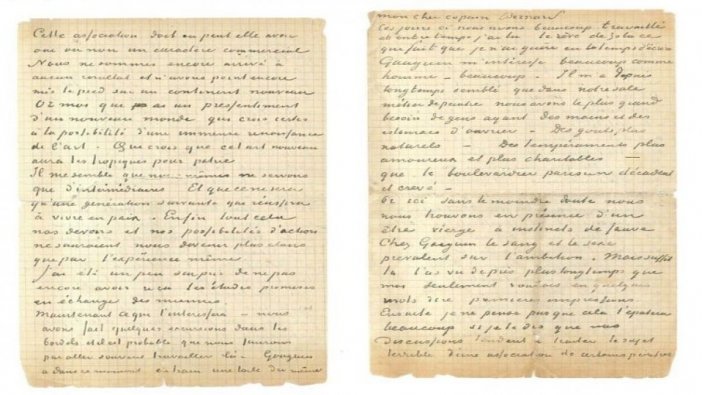 Cette association doit ou peut elle avoir
oui ou non un caractère commercial
Nous ne sommes encore arrivé à
aucun résultat et n'avons point encore
mis le pied sur un continent nouveau
Or moi que ai un pressentiment
d'un nouveau monde qui crois certes
à la possibilité d'une immense renaissance
de l'art. Qui crois que cet art nouveau
aura les tropiques pour patrie
Il me semble que nous-mêmes ne servons
que d'intermédiaires Et que ce ne sera
qu'une génération suivante qui réussira
à vivre en paix. Enfin tout cela
nos devoirs et nos possibilités d'action
ne sauraient nous devenir plus clairs
que par l'expérience même
J'ai été un peu surpris de ne pas
encore avoir reçu les études promises
en échange des miennes
Maintenant ce qui t'intéressera – nous
avons fait quelques excursions dans les
bordels et il est probable que nous finirons
par aller souvent travailler là. Gauguin
a dans ce moment en train une toile du même
mon cher copain Bernard
Ces jours ci nous avons beaucoup travaillé
et entretemps j'ai lu le rêve de Zola ce
qui fait que je n'ai guère eu le temps d'écrire
Gauguin m'intéresse beaucoup comme
homme – beaucoup. – Il m'a depuis
longtemps semblé que dans notre sale
métier de peintre nous avons le plus grand
besoin de gens ayant des mains et des
estomacs d'ouvrier – Des goûts plus
naturels – Des tempéraments plus
amoureux et plus charitables –
que le boulevardier parisien décadent
et crevé –
Or ici sans le moindre doute nous
nous trouvons en présence d'un
être vierge à instincts de fauve
Chez Gauguin le sang et le sexe
prévalent sur l'ambition. Mais suffit
tu l'as vu de près plus longtemps que
moi seulement voulais en quelques
mots dire premières impressions
Ensuite je ne pense pas que cela t'épatera
beaucoup si je te dis que nos
discussions tendent à traiter le sujet
terrible d'une association de certains peintres